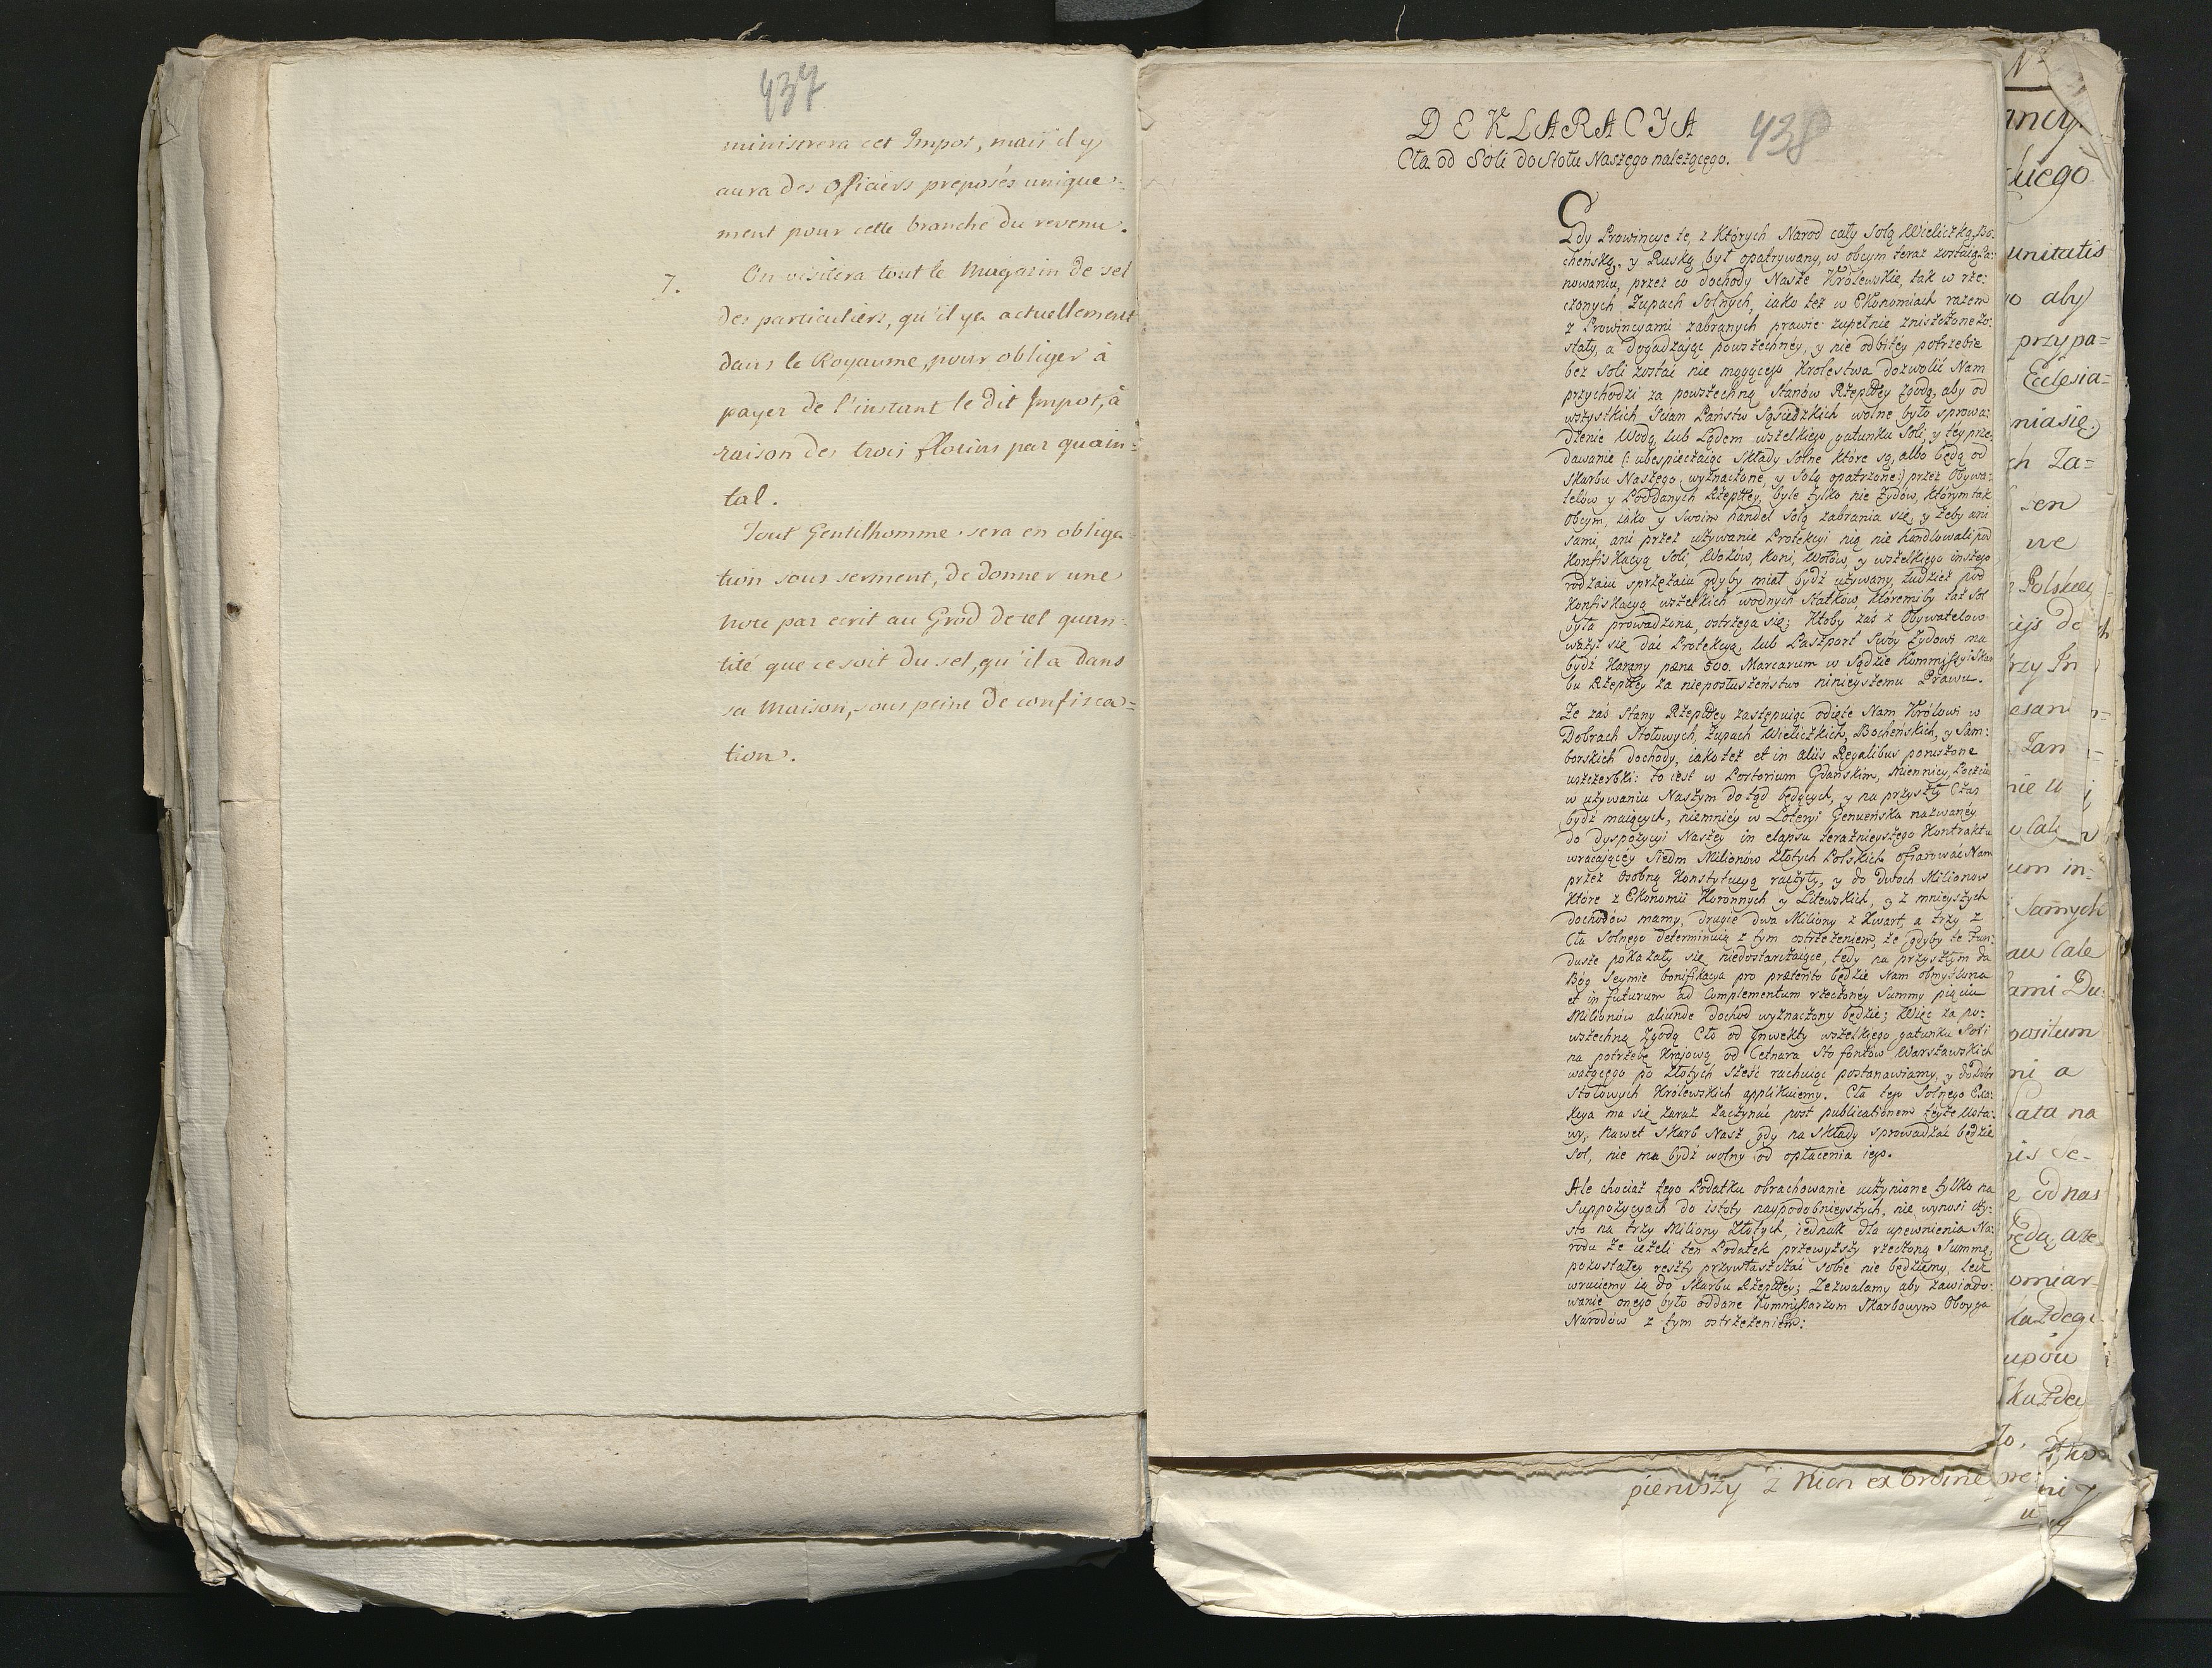 437
ministrera cet Impot, mais il y
aura des officiers preposés unique=
ment pour cette branche du revenu.
7. On visitera tout le Magazin de sel
des particuliers, qu'il ya actuellement
dans le Royaume, pour obliger à
payer de l'instant le dit Impot, à
raison des trois florins par quain=
tal.
Tout Gentilhomme sera en obliga
tion sous serment, de donner une
note par ecrit au Grod de tel quan=
tité que ce soit du sel, qu'il a dans
sa Maison, sous peine de confisca=
tion.
438
DEKLARACYA
Cła od Soli do Stołu Naszego należącego.
Gdy Prowincye te, z których Narod cały Solą Wieliczką, Bo=
cheńską, y Ruską był opatrywany, w obcym teraz zostaią Pa=
nowaniu, przez co dochody Nasze Królewskie, tak w rze=
czonych Żupach Solnych, iako też w Ekonomiach razem
z Prowincyami zabranych prawie zupełnie zniszczone zo=
stały, a dogadzaiąc powszechney, y nie odbitey potrzebie
bez Soli zostać nie mogącego Krolestwa dozwolić Nam
przychodzi za powszechną Stanów Rzepltey zgodą, aby od
wszystkich Scian Państw Sąsiedzkich wolne było sprowa=
dzenie Wodą, lub Lądem wszelkiego gatunku Soli, y tey prze=
dawanie (: ubespieczaiąc Składy Solne które są, albo będą od
Skarbu Naszego wyznaczone, y Solą opatrzone:) przez Obywa=
telów y Poddanych Rzepltey, byle tylko nie Żydów, którym tak
Obcym, iako y Swoim handel Solą zabrania się, y żeby ani
sami, ani przez używanie Protekcyi nią nie handlowali pod
Konfiskacyą Soli, Wozów, Koni, Wołów, y wszelkiego inszego
rodzaiu sprzężaiu gdyby miał bydź używany, tudzież pod
Konfiskacyą wszelkich wodnych Statków, któremiby taż Sol
była prowadzona, ostrzega się; Ktoby zaś z Obywatelow
ważył się dać Protekcyą, lub Paszport Swóy Żydowi ma
bydź Karany pæna 500. Marcarum w Sądzie Kommissyi Skar
bu Rzepltey za nieposłuszeństwo ninieyszemu Prawu.
Że zaś Stany Rzepltey zastępuiąc odięte Nam Królowi w
Dobrach Stołowych, Żupach Wielickich, Bocheńskich, y Sam=
borskich dochody, iako też et in aliis Regalibus poruszone
uszczerbki: to iest w Portorium Gdańskim, Miennicy, Pocztie
w używaniu Naszym do tąd będących, y na przyszły Czas
bydź maiących, niemniey w Loteryi Genueńska nazwaney
do dyspozycyi Naszey in elapsu teraznieyszego Kontraktu
wracaiącey Siedm Milionów Złotych Polskich ofiarować Nam
przez Osobną Konstytucyą raczyły, y do Dwoch Milionow
które z Ekonomii Koronnych y Litewskich, y z mnieyszych
dochodów mamy, drugie dwa Miliony z Kwart, a trzy z
Cła Solnego determinuią z tym ostrzeżeniem, że gdyby te Fun=
dusze pokazały się niedostarczaiące, tedy na przyszłym da
Bóg Seymie bonifikacya pro præterito będzie Nam obmyślona
et in futurum ad Complementum rzeczoney Summy pięciu
Milionów aliunde dochod wyznaczony będzie; Więc za po=
wszechną Zgodą Cło od Inwekty wszelkiego gatunku Soli
na potrzebę Kraiową od Cetnara Sto funtów Warszawskich
ważącego po Złotych Sześć rachuiąc postanawiamy, y do Dobr
Stołowych Królewskich applikuiemy. Cła tego Solnego Exa=
kcya ma się zaraz zaczynać post publicationem teyże Usta=
wy, nawet Skarb Nasz gdy na Składy sprowadzać będzie
Sol, nie ma bydź wolny od opłacenia iego.
Ale chociaż tego Podatku obrachowanie uczynione tylko na
Suppozycyach do istoty naypodobnieyszych, nie wynosi czy=
sto na trzy Miliony Złotych, iednak dla upewnienia Na=
rodu że ieżeli ten Podatek przewyższy rzeczoną Summę,
pozostałey reszty przywłaszczać sobie nie będziemy, lecz
wruciemy ią do Skarbu Rzepltey; Zezwalamy aby zawiado=
wanie onego było oddane Kommissarzom Skarbowym Oboyga
Narodów z tym ostrzeżeniem:
pierwszy z Nich ex ordine
unitatis
aby
przypa=
Ecclesia=
niasię
Za=
Polskiey
um in=
Samych
cale
positum
ni a
Lata na
od nas
każdego
każdey